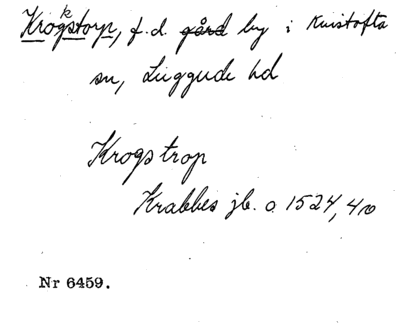 Krogkstorp, f. d. gård by i Kvistofta
sn, Luggude hd
Krogstrop
Krabbes jb. o. 1524, 40
Nr 6459.